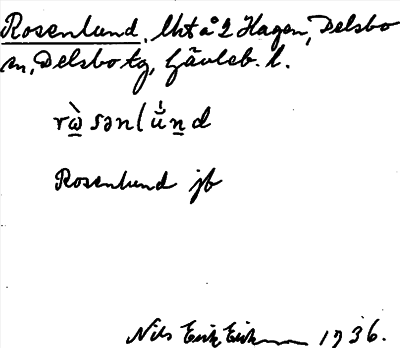 Rosenlund, lht å 2 Hagen, Delsbo
sn, Delsbo tg, Gävleb. l.
rὼ̱sənlú̇ṉd
Rosenlund jb
Nils Erik 1936.